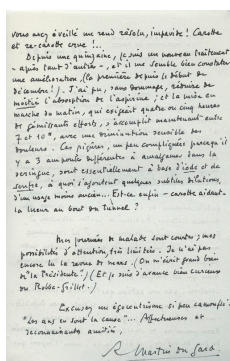 vous avez éveillé un rené résolu, imperide ! Carotte
et re-carotte crue !..
Depuis une quinzaine, je suis un nouveau traitement
- après tant d'autres -, et il me semble bien constater
une amélioration, (la première depuis le début de
décembre !). J'ai pu, sans dommage, réduire de
moitié l'absorption de l'aspirine, et la mise en
marche du matin, qui exigeait quatre ou cinq heures
de gémissants efforts, s'accomplit maintenant entre
7 et 10h, avec une diminution sensible des
douleurs. Ces piqûres, un peu compliquées parce qu'il
y a 3 ampoules différentes à amalgamer dans la
seringue, sont essentiellement à base d'iode et de
soufre, à quoi s'ajoutent quelques subtiles dilutions,
d'un usage moins ancien. Est-ce enfin - carotte aidant -
la lueur au bout du tunnel ?
Mes journées de malade sont courtes ; mes
possibilités d'attention, très limitées. Je n'ai pas
encore lu la revue de mars. (On m'écrit grand bien
de "la Présidente".) (Et je suis d'avance bien curieux
du Robbe-Grillet.)
Excusez un égocentrisme si peu camouflé.
"Les ans en sont la cause"... Affectueuse et
reconnaissante amitié,
R. Martin du Gard